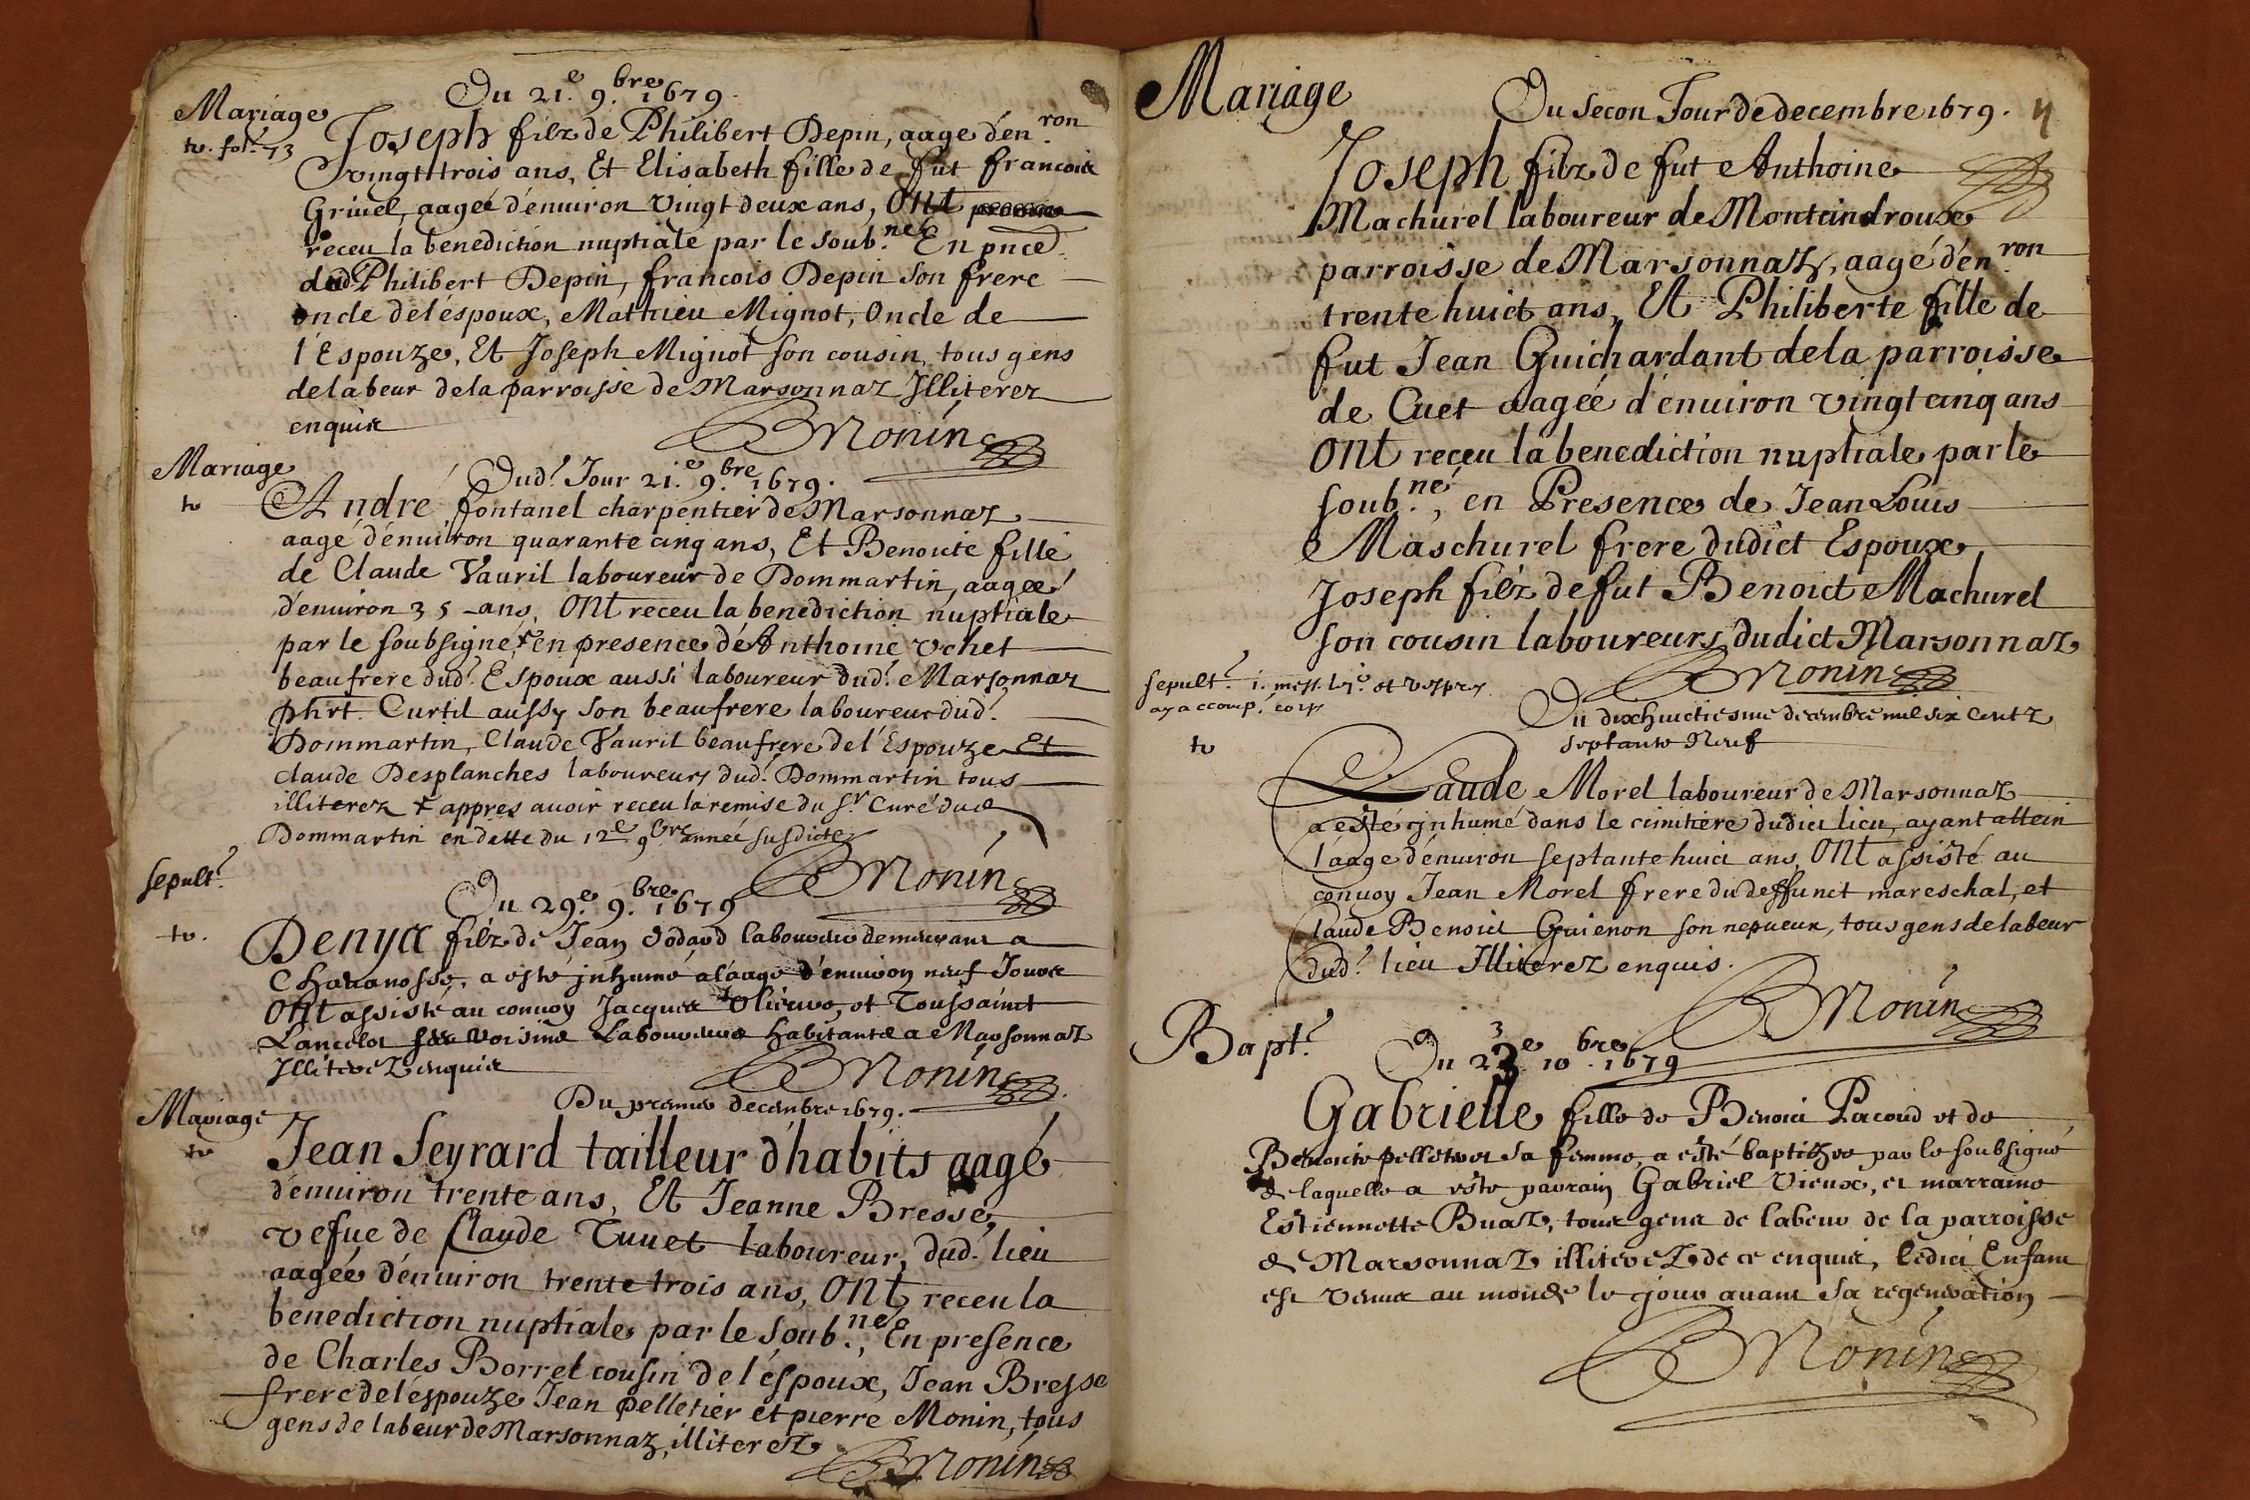 Mariage
Du 21.e 9.bre 1679.
tv. fol. 73
Joseph filz de Philibert Depin, aagé d'en.ron
vingt trois ans, Et Elisabeth fille de fut francois
Griuel, aageé d'enuiron vingt deux ans, Ont
receu la benediction nuptiale par le soub.né En pnce
dud. Philibert Depin, francois Depin son frere
oncle de l'éspoux, Mathieu Mignot, Oncle de
l'Espouze, Et Joseph Mignot son cousin, tous gens
de labeur de la parroisse de Marsonnaz Illiterez
enquis
BMonin
Mariage
Dud.t Jour 21.e 9.bre 1679.
tv
André fontanel charpentier de Marsonnaz
aagé d'enuiron quarante cinq ans, Et Benoite fille
de Claude Vauril laboureur de Dommartin, aageé
d'enuiron 35 ans, Ont receu la benediction nuptiale
par le soubsigné + en presence de Anthoine Vchet
beaufrere dud.t Espoux aussi laboureur dud.t Marsonnaz
phrt. Curtil aussy son beaufrere laboureur dud.t
Dommartin, Claude Vauril beaufrere de l'Espouze Et
claude Desplanches laboureurs dud.t Dommartin tous
illiterez + appres auoir receu la remise du Sr Curé dud
Dommartin en datte du 12e 9bre année susdicte
BMonin
sepult.
Du 29.e 9.bre 1679
tv.
Denys filz de Jean Godard laboureur demeurant a
Chauanosse, a esté jnhumé a l'aage d'enuiron neuf Jours
Ont assisté au conuoy Jacques Oliéure, et Toussainct
Lancelot ses voisins Laboureurs habitants a Marsonnaz
Illiterez enquis
BMonin
Mariage
Du premier decembre 1679.
tv
Jean Seyrard tailleur d'habits aagé
d'enuiron trente ans, Et Jeanne Bresse,
vefue de Claude Tuuet laboureur, dud.t lieu
aagée d'enuiron trente trois ans, Ont receu la
benediction nuptiale par le soub.né, En presence
de Charles Borrel cousin de l'éspoux, Jean Bresse
frere de l'espouze Jean pelletier et pierre Monin, tous
gens de labeur de Marsonnaz, illiterez
BMonin
Mariage
Du Secon Jour de decembre 1679.
Joseph filz de fut Anthoine
Machurel laboureur de Monteindroux
parroisse de Marsonnaz, aagé d'en.ron
trente huict ans, Et Philiberte fille de
fut Jean Guichardant de la parroisse
de Cuet aagée d'enuiron vingt cinq ans
Ont receu la benediction nuptiale par le
soub.né, en Presence de Jean Louis
Maschurel frere dudict Espoux,
Joseph filz de fut Benoict Machurel
son cousin laboureurs dudict Marsonnaz
BMonin
sepult.
Du dixhuictiesme decembre mil six centz
septante Neuf
tv
Claude Morel laboureur de Marsonnaz
a esté jnhumé dans le cimitiere dudict lieu, ayant attein
l'aage d'enuiron septante huict ans, Ont assisté au
conuoy Jean Morel frere du deffunct mareschal, et
Claude Benoict Guienon son nepueux, tous gens de labeur
dud.t lieu Illiterez enquis.
BMonin
Bapt.
Du 23e 10.bre 1679
Gabrielle fille de Benoict Pacoud et de
Benoite pelletier sa femme, a esté baptizee par le soubsigné
de laquelle a esté parrain Gabriel Vieux, et marraine
Estiennette Buaz, tous gens de labeur de la parroisse
de Marsonnaz illiterez de ce enquis, Ledict Enfant
est venue au monde le jour auant sa regeneration
BMonin